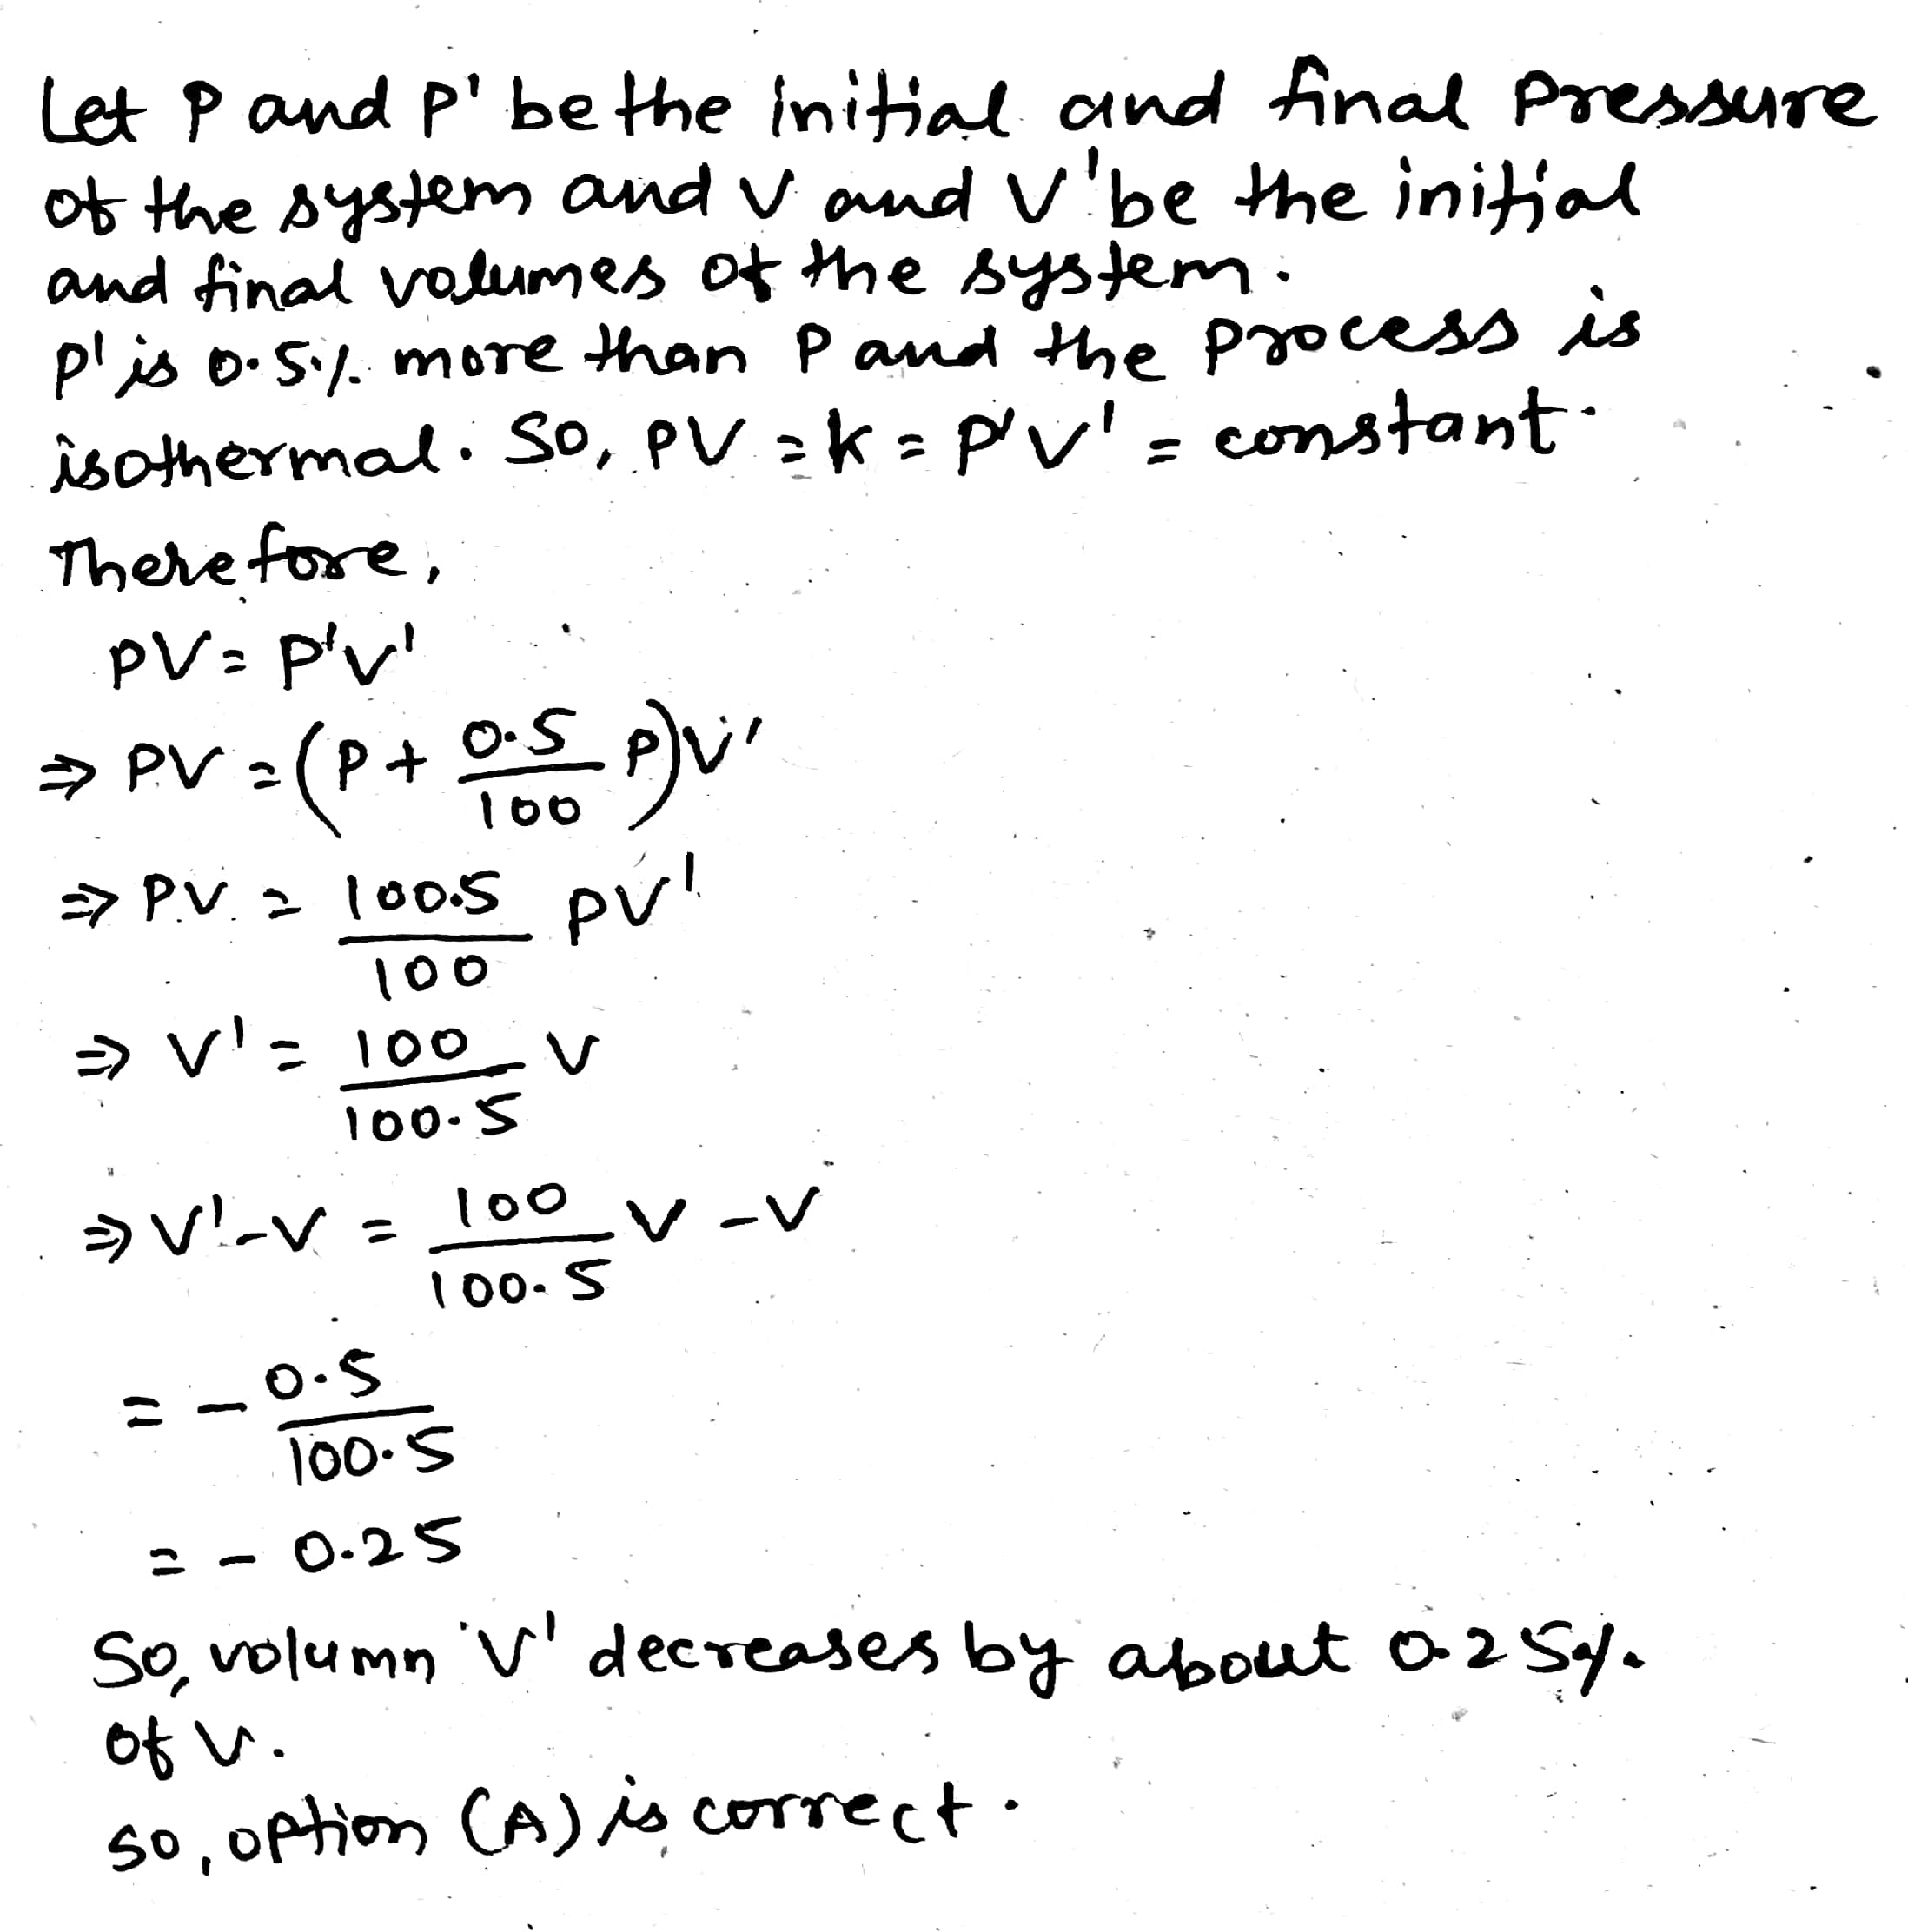 Let P and P' be the initial and final pressure
of the system and V and V' be the initial
and final volumes of the system.
P' is 0.5% more than P and the process is
isothermal. So, PV = K = P'V' = constant
Therefore,
PV = P'V'
⇒ PV = (P + 0.5/100 P)V'
⇒ PV = 100.5/100 PV'
⇒ V' = 100/100.5 V
⇒ V' - V = 100/100.5 V - V
= - 0.5/100.5
= - 0.25
So, volumn 'V' decreases by about 0.25%.
of V.
so, option (A) is correct.